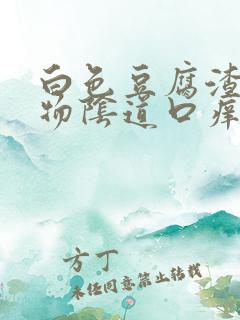 白色豆腐渣
物阴道口痒
方丁
未经同意禁止转载